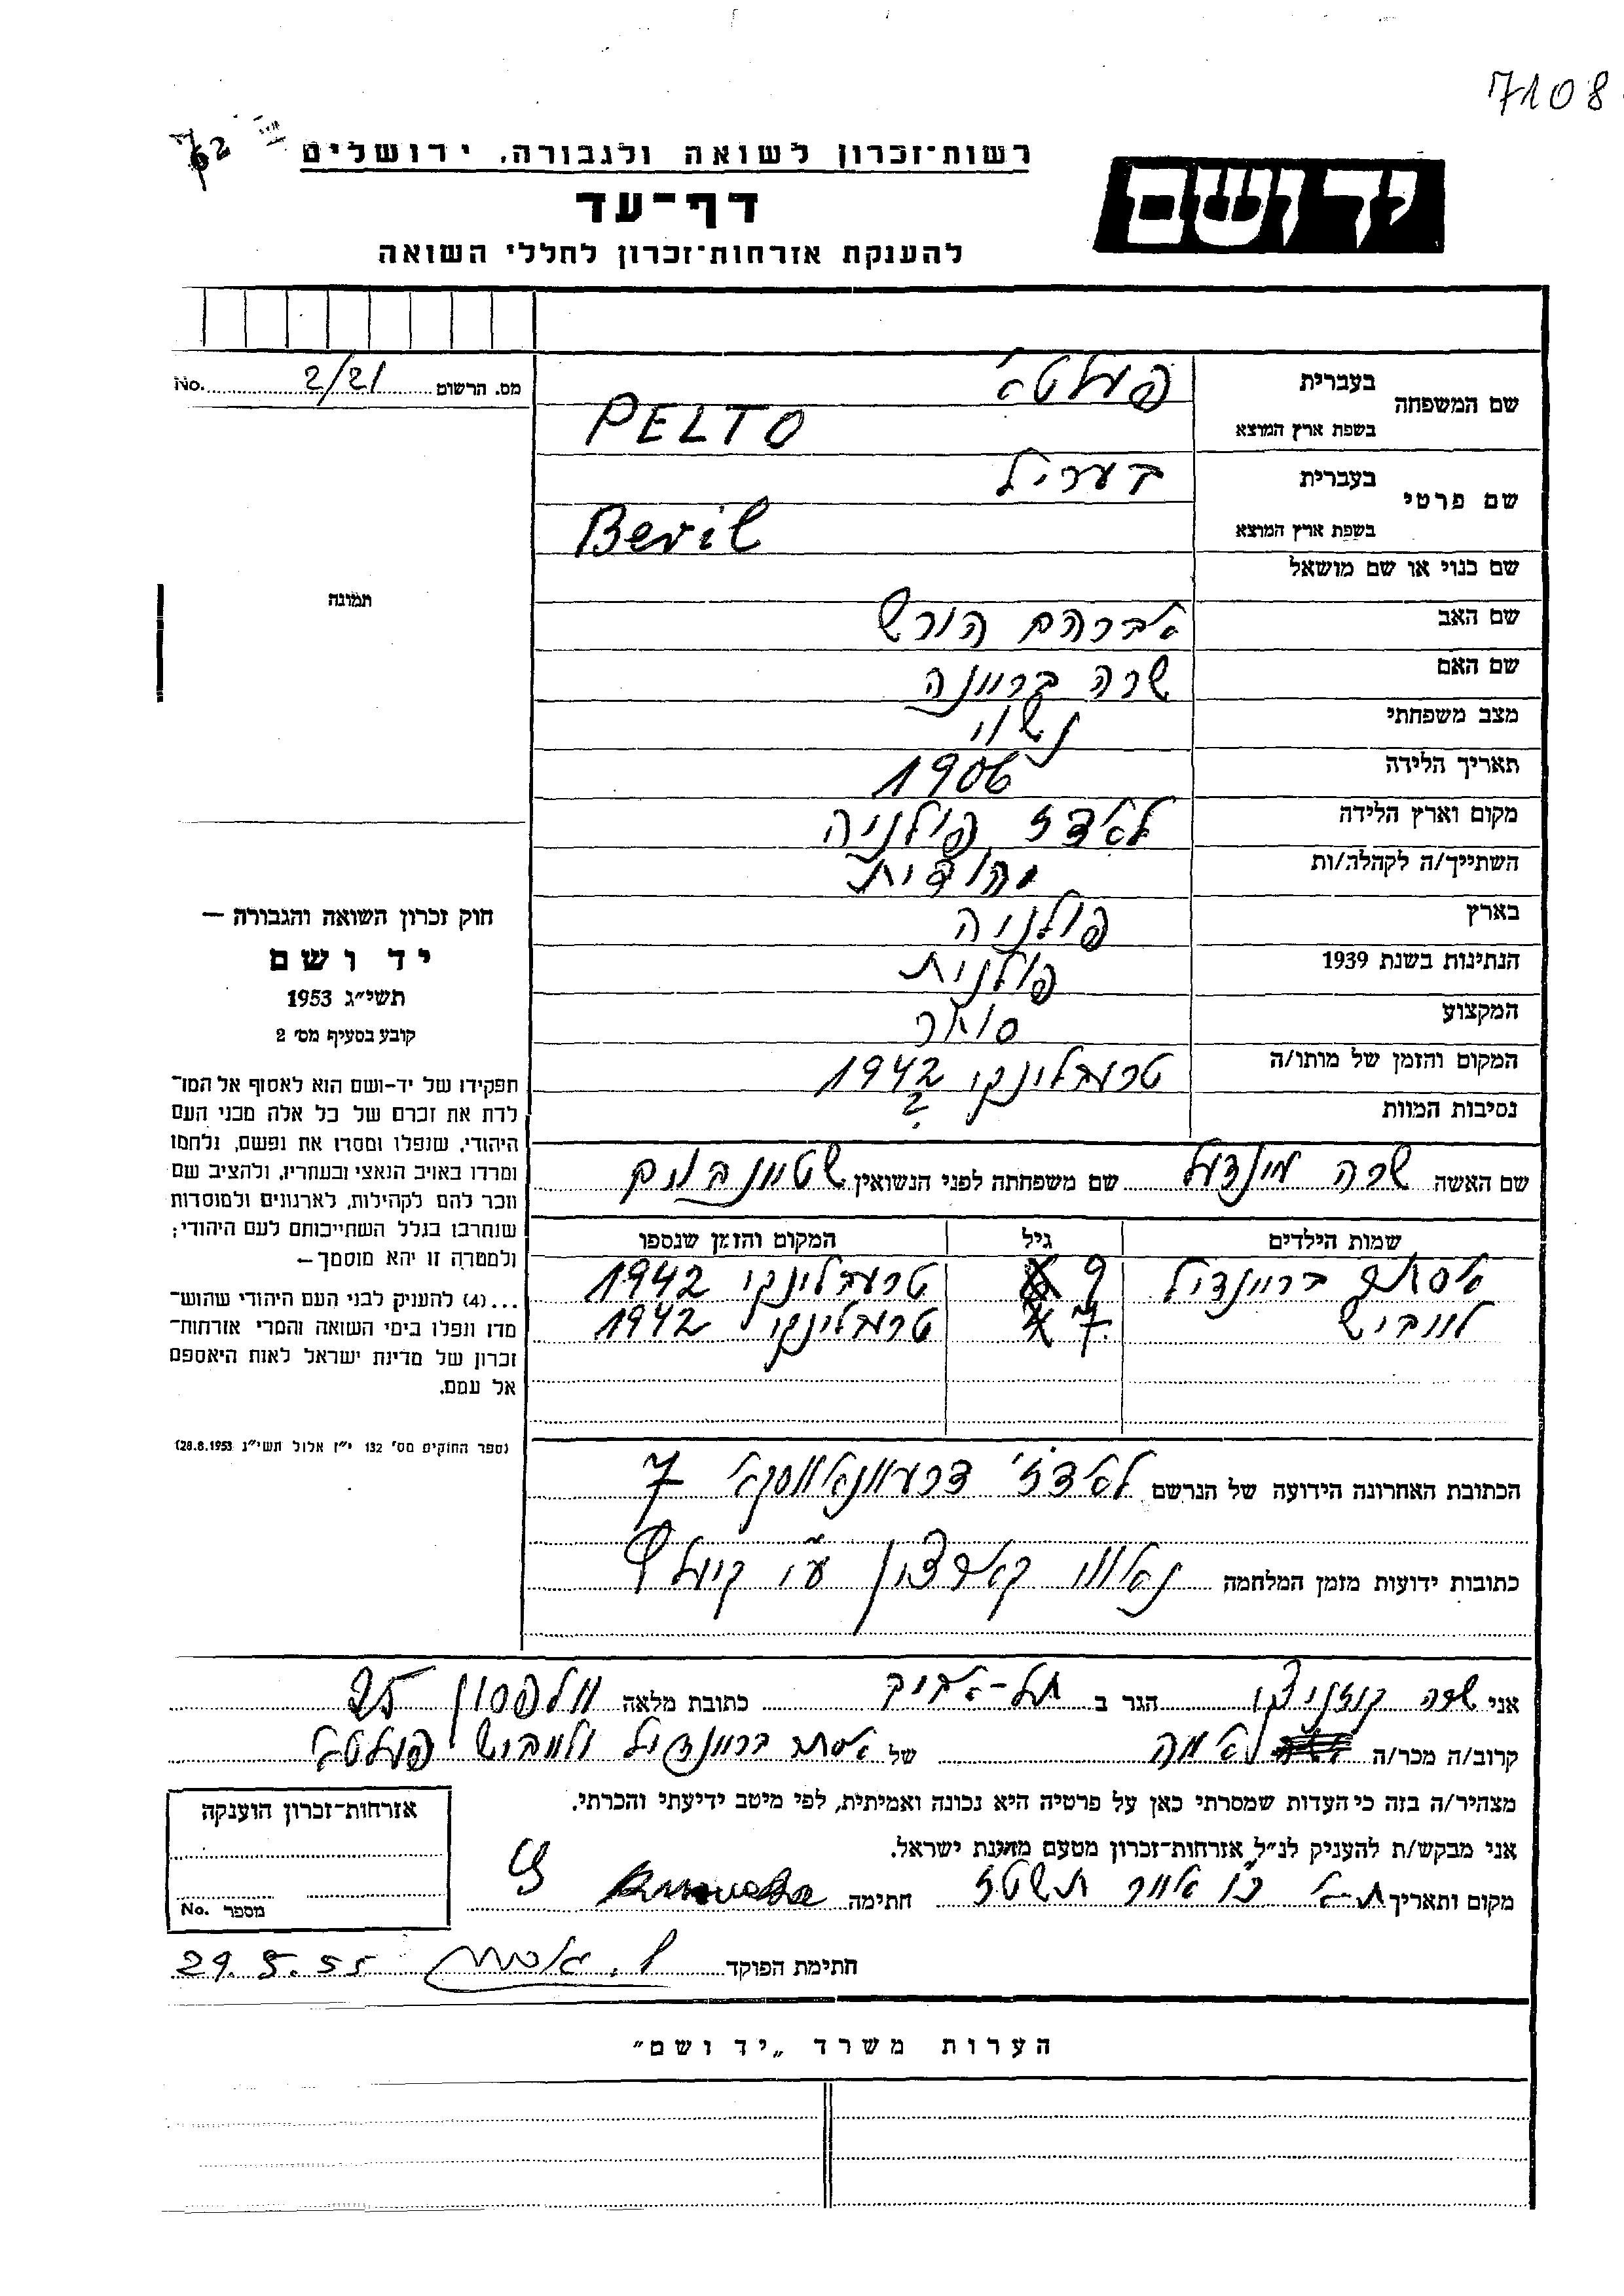 7108
רשות־זכרון לשואה ולגבורה, ירושלים
יד ושם
דף־עד
להענקת אזרחות־זכרון לחללי השואה
No. 2/21 מס. הרשום
שם המשפחה בעברית פעלטא
בשפת ארץ המוצא PELTO
שם פרטי בעברית בעריל
בשפת ארץ המוצא Beril
שם כנוי או שם מושאל
שם האב אברהם הורש
שם האם שרה בריינה
מצב משפחתי נשוי
תאריך הלידה 1906
מקום וארץ הלידה לאדז פולניה
השתייך/ה לקהלה/ות יהודית
בארץ פולניה
הנתינות בשנת 1939 פולנית
המקצוע סוחר
המקום והזמן של מותו/ה טרעבלינקי 1942
נסיבות המוות ?
תמונה
חוק זכרון השואה והגבורה —
יד ושם
תשי״ג 1953
קובע בסעיף מס׳ 2
תפקידו של יד־ושם הוא לאסוף אל המו־
לדת את זכרם של כל אלה מבני העם
היהודי, שנפלו ומסרו את נפשם, נלחמו
ומרדו באויב הנאצי ובעוזריו, ולהציב שם
וזכר להם לקהילות, לארגונים ולמוסדות
שנחרבו בגלל השתייכותם לעם היהודי;
ולמטרה זו יהא מוסמך —
...(4) להעניק לבני העם היהודי שהוש־
מדו ונפלו בימי השואה והמרי אזרחות־
זכרון של מדינת ישראל לאות היאספם
אל עמם.
(ספר החוקים מס׳ 132 י״ז אלול תשי״ג 28.8.1953)
שם האשה שרה מינדעל שם משפחתה לפני הנשואין שטיינבוים
שמות הילדים גיל המקום והזמן שנספו
אסתר בריינדיל 9 טרעבלינקי 1942
לייביש 7 טרעבלינקי 1942
הכתובת האחרונה הידועה של הנרשם לאדז׳ דרעוונאווסקא 7
כתובות ידועות מזמן המלחמה
אני שרה הגר ב תל־אביב כתובת מלאה וולפסון 25
קרוב/ה מכר/ה של אסתר בריינדיל ולייביש פעלטא
מצהיר/ה בזה כי העדות שמסרתי כאן על פרטיה היא נכונה ואמיתית, לפי מיטב ידיעתי והכרתי.
אני מבקש/ת להעניק לנ״ל אזרחות־זכרון מטעם מדינת ישראל.
מקום ותאריך ת־א אייר חתימה
חתימת הפוקד 29.5.55
אזרחות־זכרון הוענקה
מספר No.
הערות משרד „יד ושם״